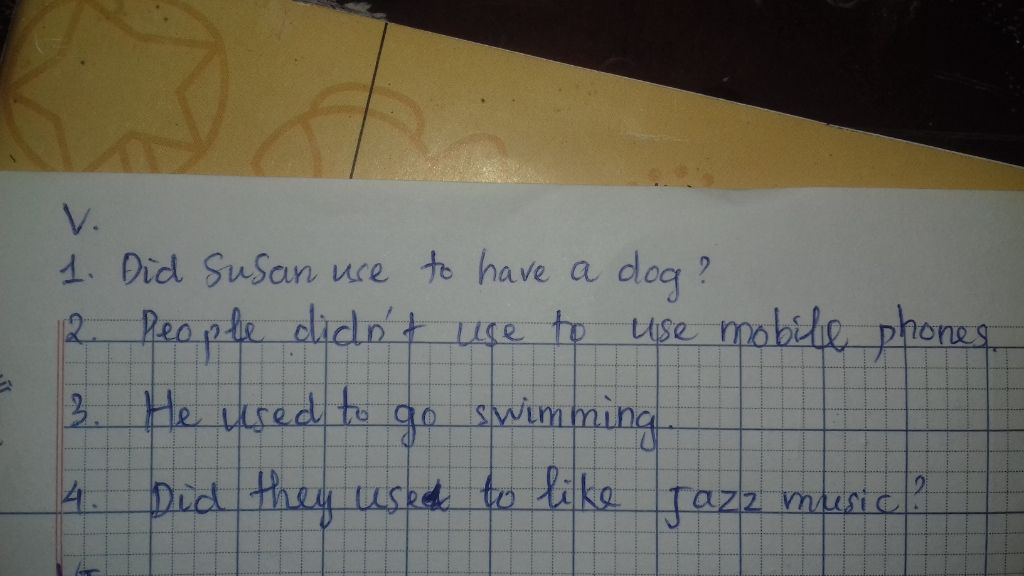 V.
1. Did Susan use to have a dog?
2. People didn't use to use mobile phones.
3. He used to go swimming.
4. Did they used to like jazz music?